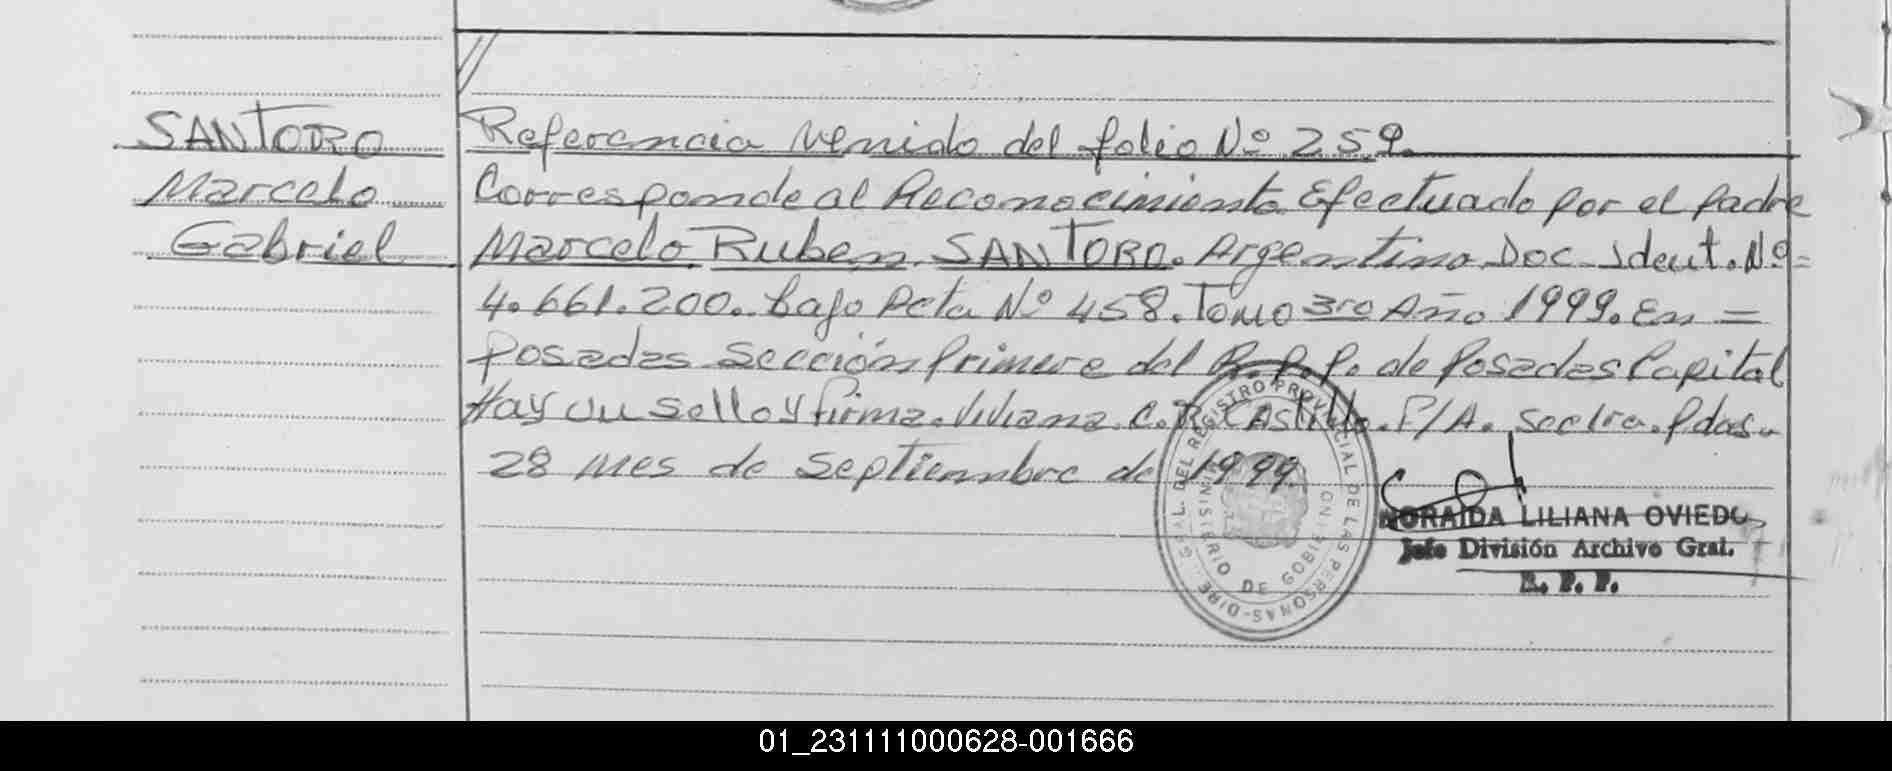 SANTORO
Marcelo
Gabriel
Referencia venido del folio Nº 259.
Corresponde al Reconocimiento Efectuado por el padre
Marcelo Ruben SANTORO. Argentino Doc. Ident. Nº=
4.661.200. bajo Acta Nº 458. Tomo 3ro Año 1999. En =
Posadas Sección Primera del R.P.P. de Posadas Capital
Hay un sello y firma. Viviana C.R. Castillo. F/A. SecIra. Pdas.
28 mes de Septiembre de 1999.
DIRE. GRAL. DEL REGISTRO PROVINCIAL DE LAS PERSONAS-
MINISTERIO DE GOBIERNO
NORAIDA LILIANA OVIEDO
Jefe División Archivo Gral.
R. P. P.
01_231111000628-001666